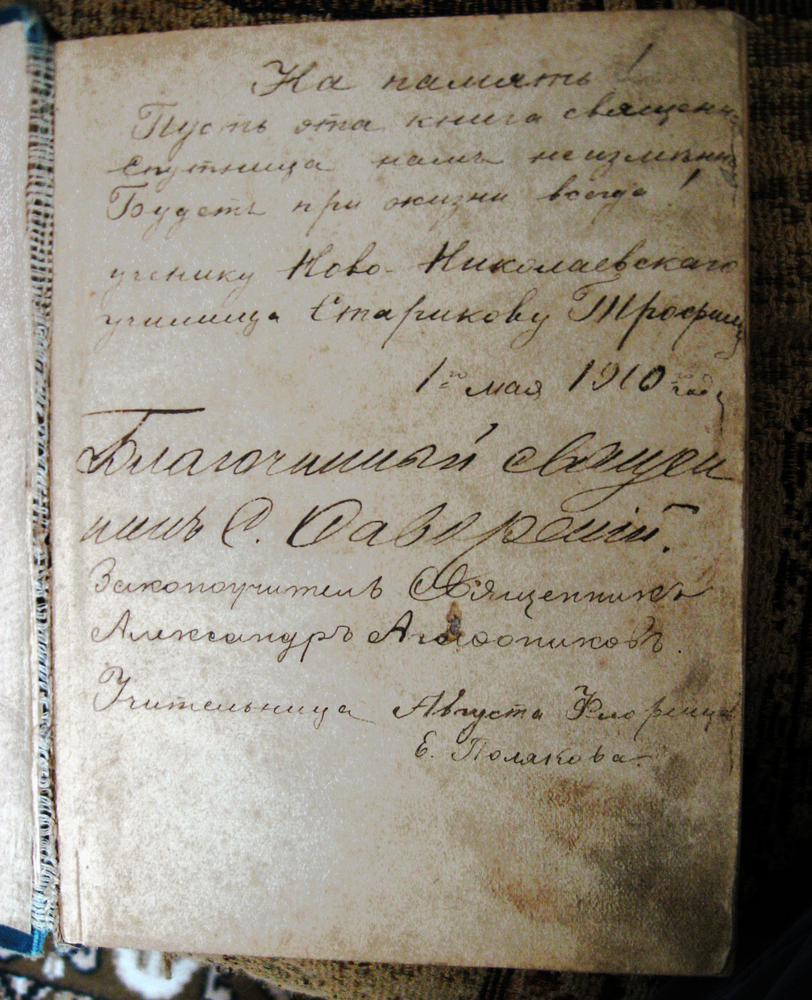 На память!
Пусть эта книга священн
спутница намъ неизмѣнн
Будетъ при жизни всегда!
ученику Ново-Николаевскаго
училища Старикову Трофиму
1го мая 1910 года
Благочинный священ
никъ С.
Законоучитель Священникъ
Александръ
Учительница Августа
Е. Полякова.